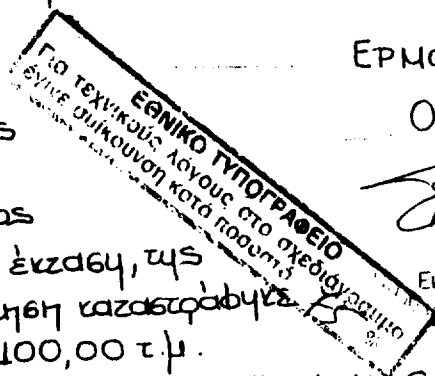 ΕΡΜΟ
Ο
ΕΘΝΙΚΟ ΤΥΠΟΓΡΑΦΕΙΟ
Για τεχνικούς λόγους στο σχεδιάγραμμα
έγινε σμίκρυνση κατά ποσοστό %
ς
ας
έκταση, της
ηση καταστράφηκε
100,00 τ.μ.